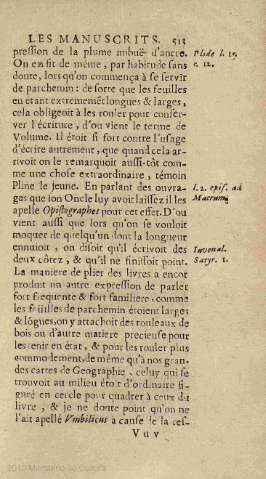 LES MANUSCRITS. 513
pression de la plume imbuë d'ancre. Plide l. 15.
On en fit de même, par habitude sans c. 12.
doute, lors qu'on commença à se servir
de parchemin: de sorte que les feuilles
en étant extremement longues & larges,
cela obligeoit à les rouler pour conser-
ver l'écriture, d'ou vient le terme de
Volume. Il étoit si fort contre l'usage
d'écrire autrement, que quand cela ar-
rivoit on le remarquoit aussi-tôt com-
me une chose extraordinaire, témoin
Pline le jeune. En parlant des ouvra- l. 2. epist. ad
ges que son Oncle luy avoit laissez il les Macrum.
apelle Opistographes pour cet effet. D'ou
vient aussi que lors qu'on se vouloit
moquer de quelqu'un dont la longueur
ennuioit, on disoit qu'il écrivoit des Iuvenal.
deux côtez, & qu'il ne finissoit point. Satyr. 1.
La maniere de plier des livres a encor
produit un autre expression de parler
fort frequente & fort familiere: comme
les feüilles de parchemin étoient larges
& lõgues, on y attachoit des rouleaux de
bois ou d'autre matiere precieuse pour
les tenir en état, & pour les rouler plus
commodement, de même qu'à nos gran-
des cartes de Geographie, celuy qui se
trouvoit au milieu étoit d'ordinaire fi-
guré en cercle pour quadrer à ceux du
livre, & je ne doute point qu'on ne
l'ait apellé Vmbilicus à cause de la res-
V u v